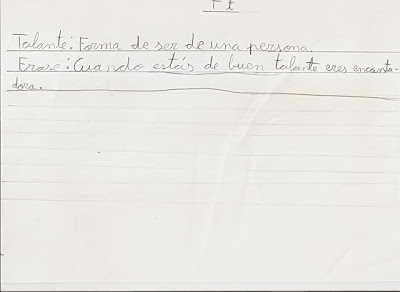 T t
Talante: Forma de ser de una persona.
Frase: Cuando estás de buen talante eres encanta-
dora.